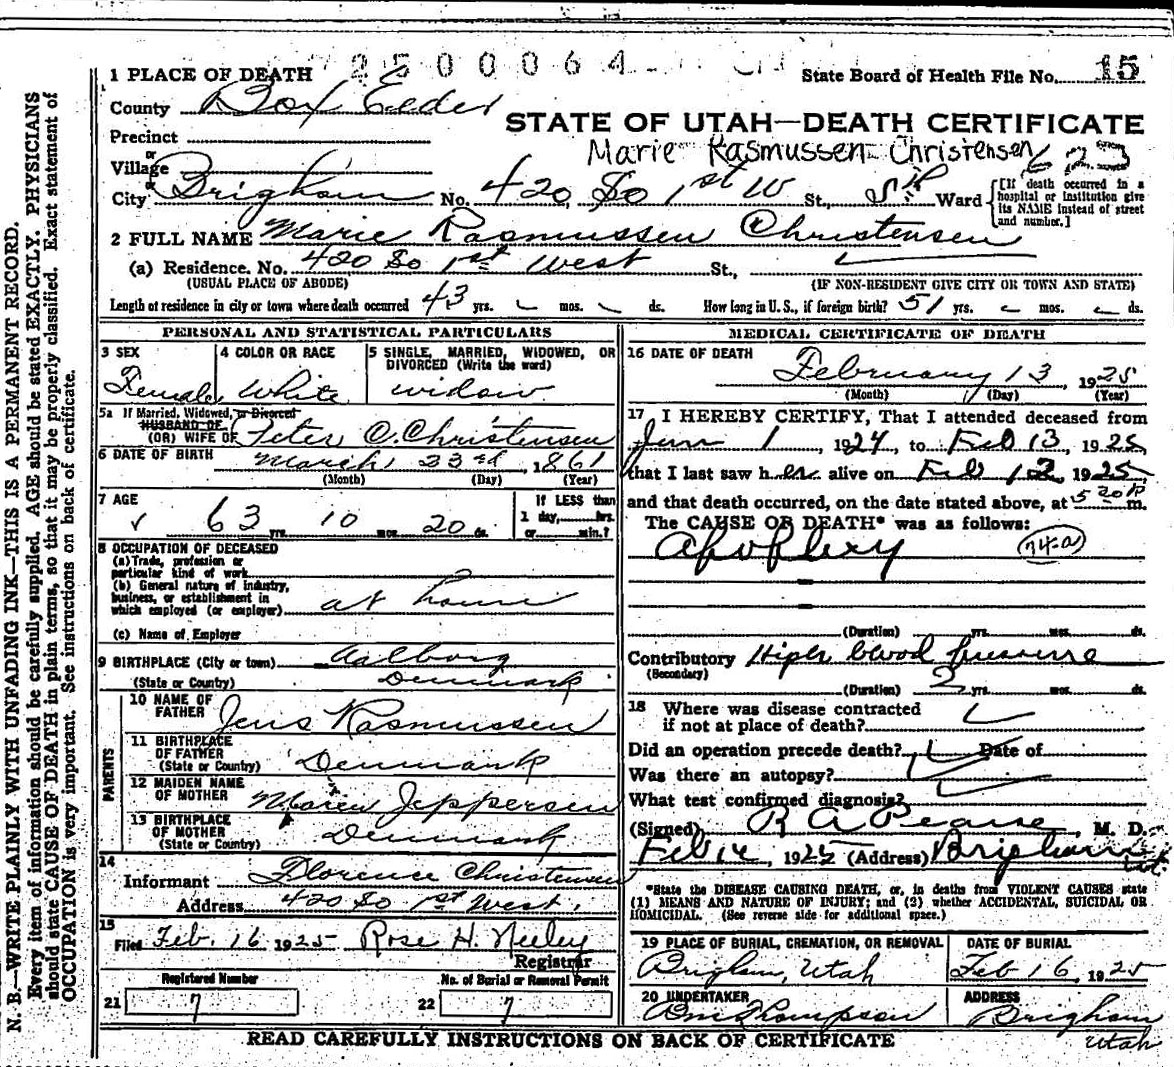 2500064
1 PLACE OF DEATH
State Board of Health File No. 15
County Box Elder
STATE OF UTAH—DEATH CERTIFICATE
Precinct
Marie Rasmussen Christensen 623
or
Village
or
City Brigham No. 420 So 1st W St., 5th Ward
[If death occurred in a hospital or institution give its NAME instead of street and number.]
2 FULL NAME Marie Rasmussen Christensen
(a) Residence. No. 420 So 1st West St.,
(USUAL PLACE OF ABODE) (IF NON-RESIDENT GIVE CITY OR TOWN AND STATE)
Length of residence in city or town where death occurred 43 yrs. mos. ds. How long in U. S., if foreign birth? 51 yrs. mos. ds.
PERSONAL AND STATISTICAL PARTICULARS
3 SEX 4 COLOR OR RACE 5 SINGLE, MARRIED, WIDOWED, OR
DIVORCED (Write the word)
Female White widow
5a If Married, Widowed, or Divorced
HUSBAND OF
(OR) WIFE OF Peter C. Christensen
6 DATE OF BIRTH March 23rd, 1861
(Month) (Day) (Year)
7 AGE If LESS than
1 day, hrs.
63 yrs. 10 mos. 20 ds. or min.?
8 OCCUPATION OF DECEASED
(a) Trade, profession or
particular kind of work
(b) General nature of industry,
business, or establishment in
which employed (or employer) at home
(c) Name of Employer
9 BIRTHPLACE (City or town) Aalborg
(State or Country) Denmark
PARENTS
10 NAME OF
FATHER Jens Rasmussen
11 BIRTHPLACE
OF FATHER
(State or Country) Denmark
12 MAIDEN NAME
OF MOTHER Maren Jeppersen
13 BIRTHPLACE
OF MOTHER
(State or Country) Denmark
14
Informant Florence Christensen
Address 420 So 1st West.
15
Filed Feb. 16 1925 Rose H. Neeley
Registrar
Registered Number No. of Burial or Removal Permit
21 7 22 7
MEDICAL CERTIFICATE OF DEATH
16 DATE OF DEATH
February 13, 1925
(Month) (Day) (Year)
17 I HEREBY CERTIFY, That I attended deceased from
1, 1924, to Feb 13, 1925
that I last saw her alive on Feb 12, 1925
and that death occurred, on the date stated above, at 5 20 P m.
The CAUSE OF DEATH* was as follows:
Apoplexy 74-a
(Duration) yrs. mos. ds.
Contributory High blood pressure
(Secondary)
(Duration) 2 yrs. mos. ds.
18 Where was disease contracted
if not at place of death?
Did an operation precede death? Date of
Was there an autopsy?
What test confirmed diagnosis?
(Signed) R A Pearse, M. D.
Feb 14, 1925 (Address) Brigham Ut.
*State the DISEASE CAUSING DEATH, or, in deaths from VIOLENT CAUSES state
(1) MEANS AND NATURE OF INJURY; and (2) whether ACCIDENTAL, SUICIDAL OR
HOMICIDAL. (See reverse side for additional space.)
19 PLACE OF BURIAL, CREMATION, OR REMOVAL DATE OF BURIAL
Brigham, Utah Feb 16, 1925
20 UNDERTAKER ADDRESS
Thompson Brigham
Utah
READ CAREFULLY INSTRUCTIONS ON BACK OF CERTIFICATE
N. B.—WRITE PLAINLY WITH UNFADING INK—THIS IS A PERMANENT RECORD.
Every item of information should be carefully supplied. AGE should be stated EXACTLY. PHYSICIANS
should state CAUSE OF DEATH in plain terms, so that it may be properly classified. Exact statement of
OCCUPATION is very important. See instructions on back of certificate.